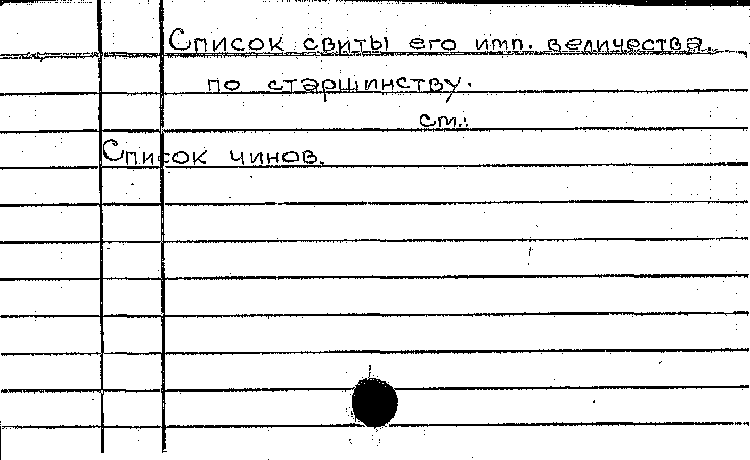 Список свиты его имп. величества.
по старшинству.
см.:
Список чинов.